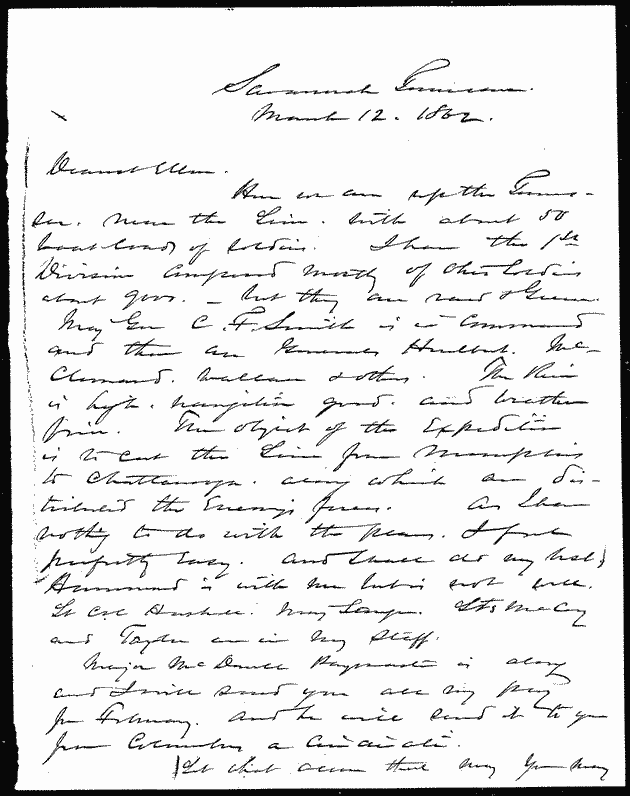 Savannah Tennessee.
March 12. 1862.
Dearest Ellen.
Here we are up the Tennes-
see. near the Line. with about 50
boat loads of soldiers. I have the 1st
Division composed mostly of Ohio Soldiers
about 9000. - but they are raw & Green.
Maj Gen C. F. Smith is in Command
and there are Generals Hurlbut. Mc-
Clernand. Wallace & others. The River
is high. navigation good. and weather
fine. The object of the Expedition
is to cut the Line from Memphis
to Chattanooga. along which are dis-
tributed the Enemy's forces. As I have
nothing to do with the plans. I feel
perfectly easy. and shall do my best.
Hammond is with me but is not well.
Lt Col Hascall. Maj Sanger. Lts McCoy
and Taylor are in my staff.
Major McDowell Paymaster is along
and I will send you all my pay
for February. and he will send it to you
from Columbus or Cincinnati.
Let what occur that may you may